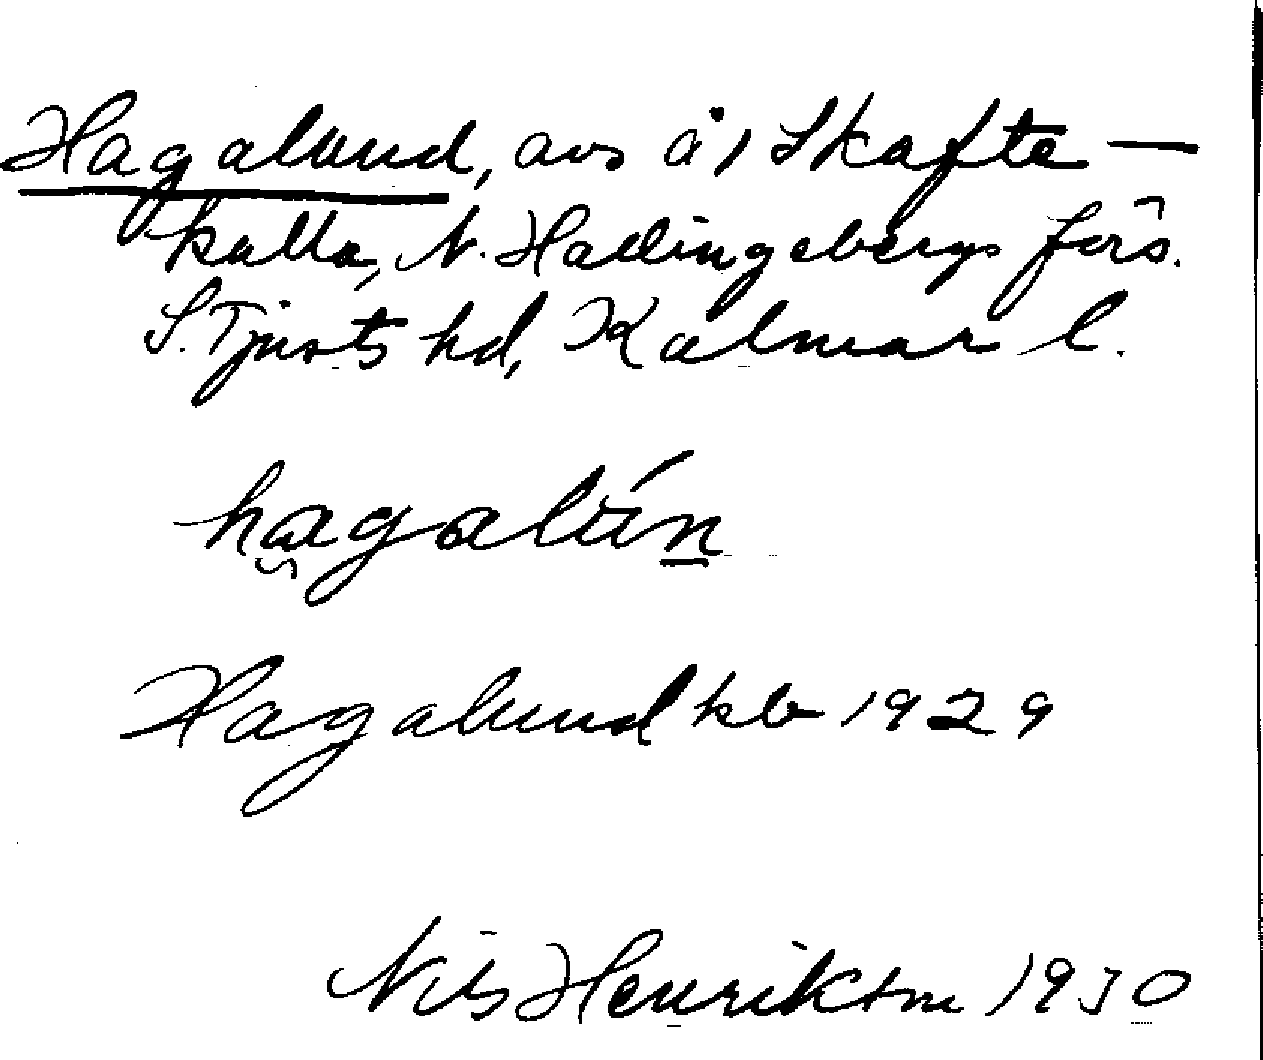 Hagalund, avs å 1 Skafte-
kulla, N. Hallingebergs förs.
S. Tjusts hd, Kalmar l.
hagalún
Hagalund kb 1929
Nils Henrikson 1930